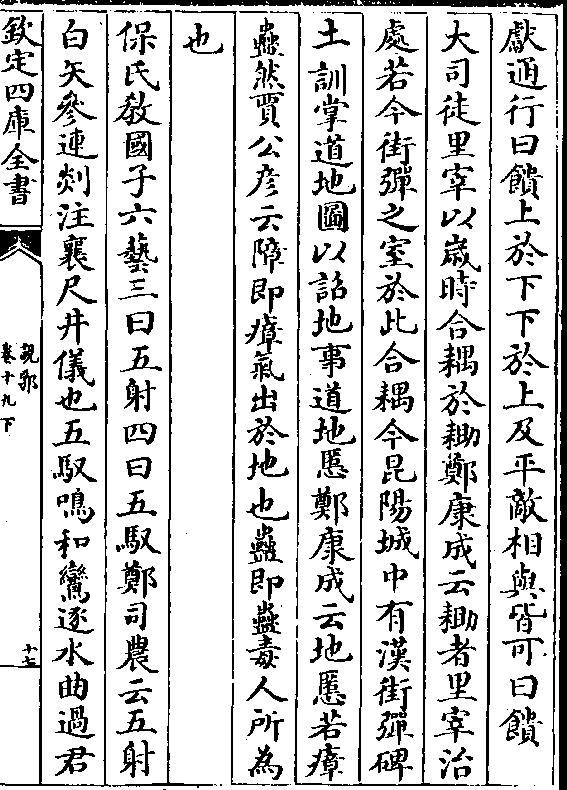 獻通行曰饋上於下下於上及平敵相與皆可曰饋
大司徒里宰以歳時合耦於耡鄭康成云耡者里宰治
處若今街彈之室於此合耦今昆陽城中有漢街彈碑
土訓掌道地圖以詔地事道地慝鄭康成云地慝若瘴
蠱然賈公彦云障即瘴氣出於地也蠱即蠱毒人所為
也
保氏教國子六藝三曰五射四曰五馭鄭司農云五射
白矢參連剡注襄尺井儀也五馭鳴和鸞逐水曲過君
欽定四庫全書
說郛
卷十九下
十七